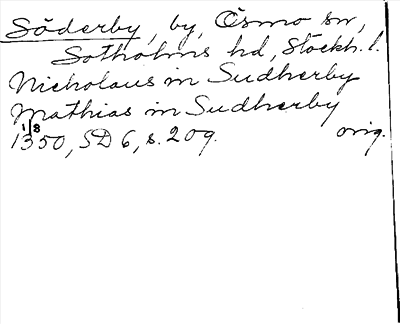 Söderby, by, Ösmo sn,
Sotholms hd, Stockh. l.
Nicholaus in Sudherby
Mathias in Sudherby
1/8
1350, SD 6, s. 209. orig.